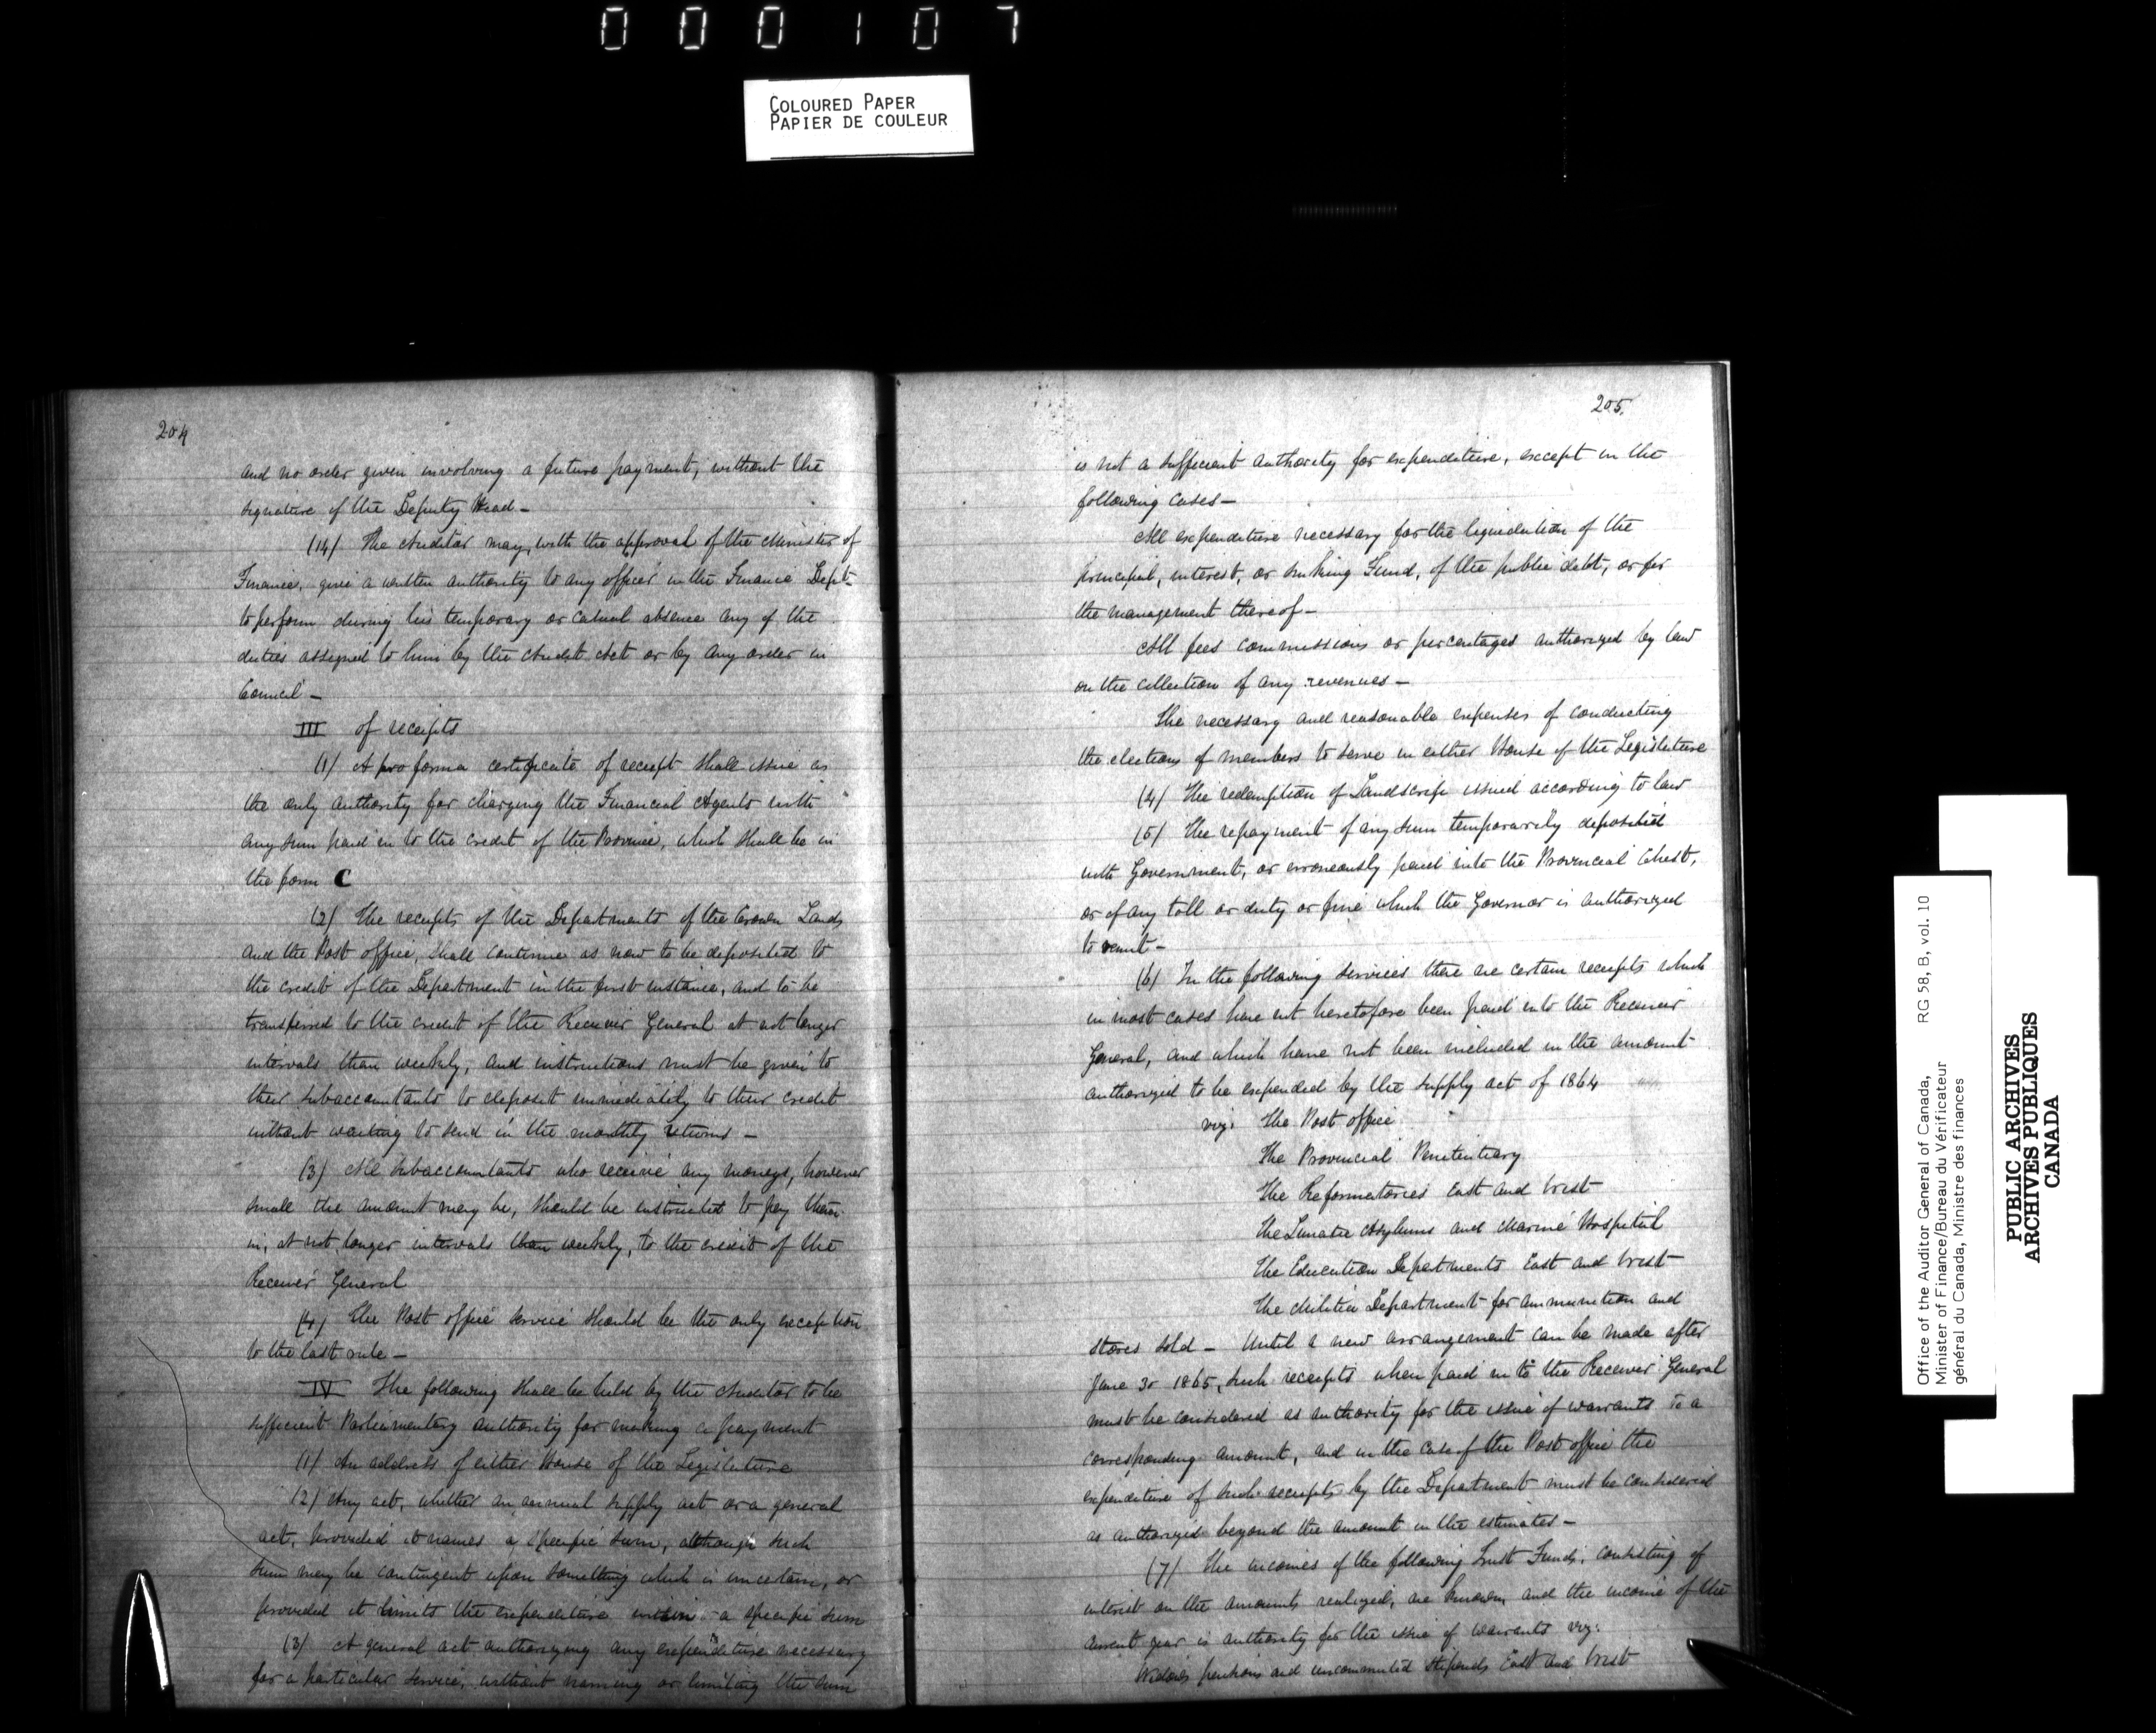 000107
COLOURED PAPER
PAPIER DE COULEUR
204
and no order given involving a future payment, without the
signature of the Deputy Head –
(14) The Auditor may, with the approval of the Minister of
Finance, give a written authority to any officer in the Finance Dept
to perform during his temporary or casual absence any of the
duties assigned to him by the Audit Act or by any order in
Council –
III of receipts
(1) A pro forma certificate of receipt shall issue as
the only authority for charging the Financial Agents with
any sum paid in to the credit of the Province, which shall be in
the form C
(2) The receipts of the Departments of the Crown Lands
and the Post office, shall continue as now to be deposited to
the credit of the Department in the first instance, and to be
transferred to the credit of the Receiver General at not longer
intervals than weekly, and instructions must be given to
their subaccountants to deposit immediately to their credit
without waiting to send in the monthly returns –
(3) All subaccountants who receive any moneys, however
small the amount may be, should be instructed to pay them
in, at not longer intervals than weekly, to the credit of the
Receiver General
(4) The Post office service should be the only exception
to the last rule –
IV The following shall be held by the Auditor to be
sufficient Parliamentary authority for making a payment
(1) An address of either House of the Legislature
(2) Any act, whether an annual supply act or a general
act, provided it names a specific sum, although such
sum may be contingent upon something which is uncertain, or
provided it limits the expenditure within a specific sum
(3) A general act authorizing any expenditure necessary
for a particular service, without naming or limiting the sum
205.
is not a sufficient authority for expenditure, except in the
following cases –
All expenditure necessary for the liquidation of the
principal, interest, or sinking Fund, of the public debt, or for
the management thereof –
All fees commissions or percentages authorized by law
on the collection of any revenues –
The necessary and reasonable expenses of conducting
the elections of members to serve in either House of the Legislature
(4) The redemption of Landscrip issued according to law
(5) The repayment of any sum temporarily deposited
with Government, or erroneously paid into the Provincial Chest,
or of any toll or duty or fine which the Governor is authorized
to remit –
(6) In the following services there are certain receipts which
in most cases have not heretofore been paid into the Receiver
General, and which have not been included in the amount
authorized to be expended by the supply act of 1864
viz: The Post office
The Provincial Penitentiary
The Reformatories East and West
The Lunatic Asylums and Marine Hospital
The Education Departments East and West
The Militia Department for ammunition and
stores sold – Until a new arrangement can be made after
June 30 1865, such receipts when paid in to the Receiver General
must be considered as authority for the issue of warrants to a
corresponding amount, and in the case of the Post office the
expenditure of such receipts by the Department must be considered
as authorized beyond the amount in the estimates –
(7) The incomes of the following Trust Funds, consisting of
interest on the amounts realized, are known, and the income of the
current year is authority for the issue of warrants viz:
Widows pensions and uncommuted stipends East and West
Office of the Auditor General of Canada, RG 58, B, vol. 10
Minister of Finance/Bureau du Vérificateur
général du Canada, Ministre des finances
PUBLIC ARCHIVES
ARCHIVES PUBLIQUES
CANADA